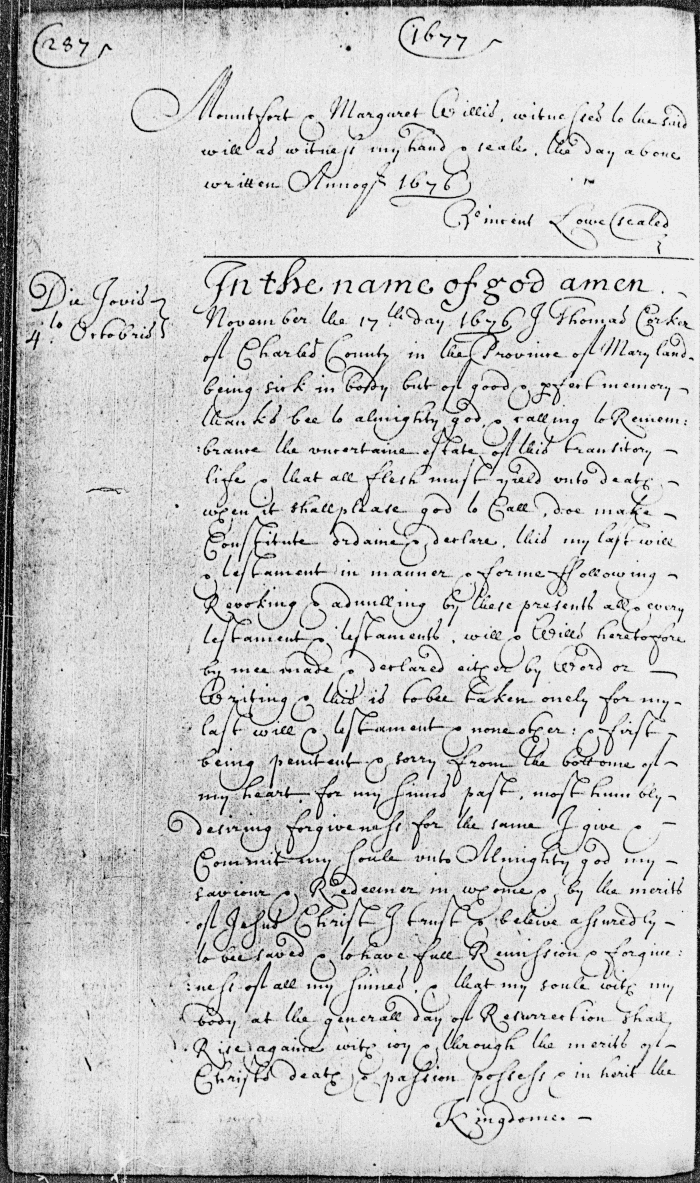 287
1677
Mountfort & Margaret Willis, witnesses to the said
will as witness my hand & seale, the day above
written Annoq 1676
Vincent Lowe (sealed)
Die Jovis
4.to Octobris
In the name of god amen.
November the 17th day 1676 I Thomas Corker
of Charles County in the Province of Maryland
being sick in body but of good & pfect memory
thanks bee to almighty god, & calling to Remem:
:brance the uncertaine estate of this transitory
life & that all flesh must yeeld unto death
when it shall please god to Call, doe make
Constitute ordaine & declare, this my last will
& testament in manner & forme ffollowing
Revoking & adnulling by these presents all & every
testament & testaments, will & Wills heretofore
by mee made & declared either by Word or
Writing & this is to bee taken onely for my
last will & testament & none other: & first
being penitent & sorry from the bottome of
my heart for my sinns past, most humbly
desiring forgiveness for the same I give &
Commit my soule unto Almighty god my
saviour & Redeemer in whome & by the merits
of Jesus Christ I trust & beleive assuredly
to bee saved & to have full Remission & forgive:
:ness of all my sinnes, & that my soule with my
body at the generall day of Resurrection shall
Rise againe with ioy & through the merits of
Christs death & passion possess & inherit the
Kingdome